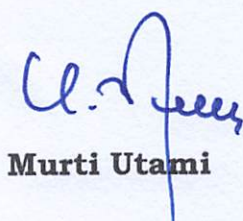 Murti Utami